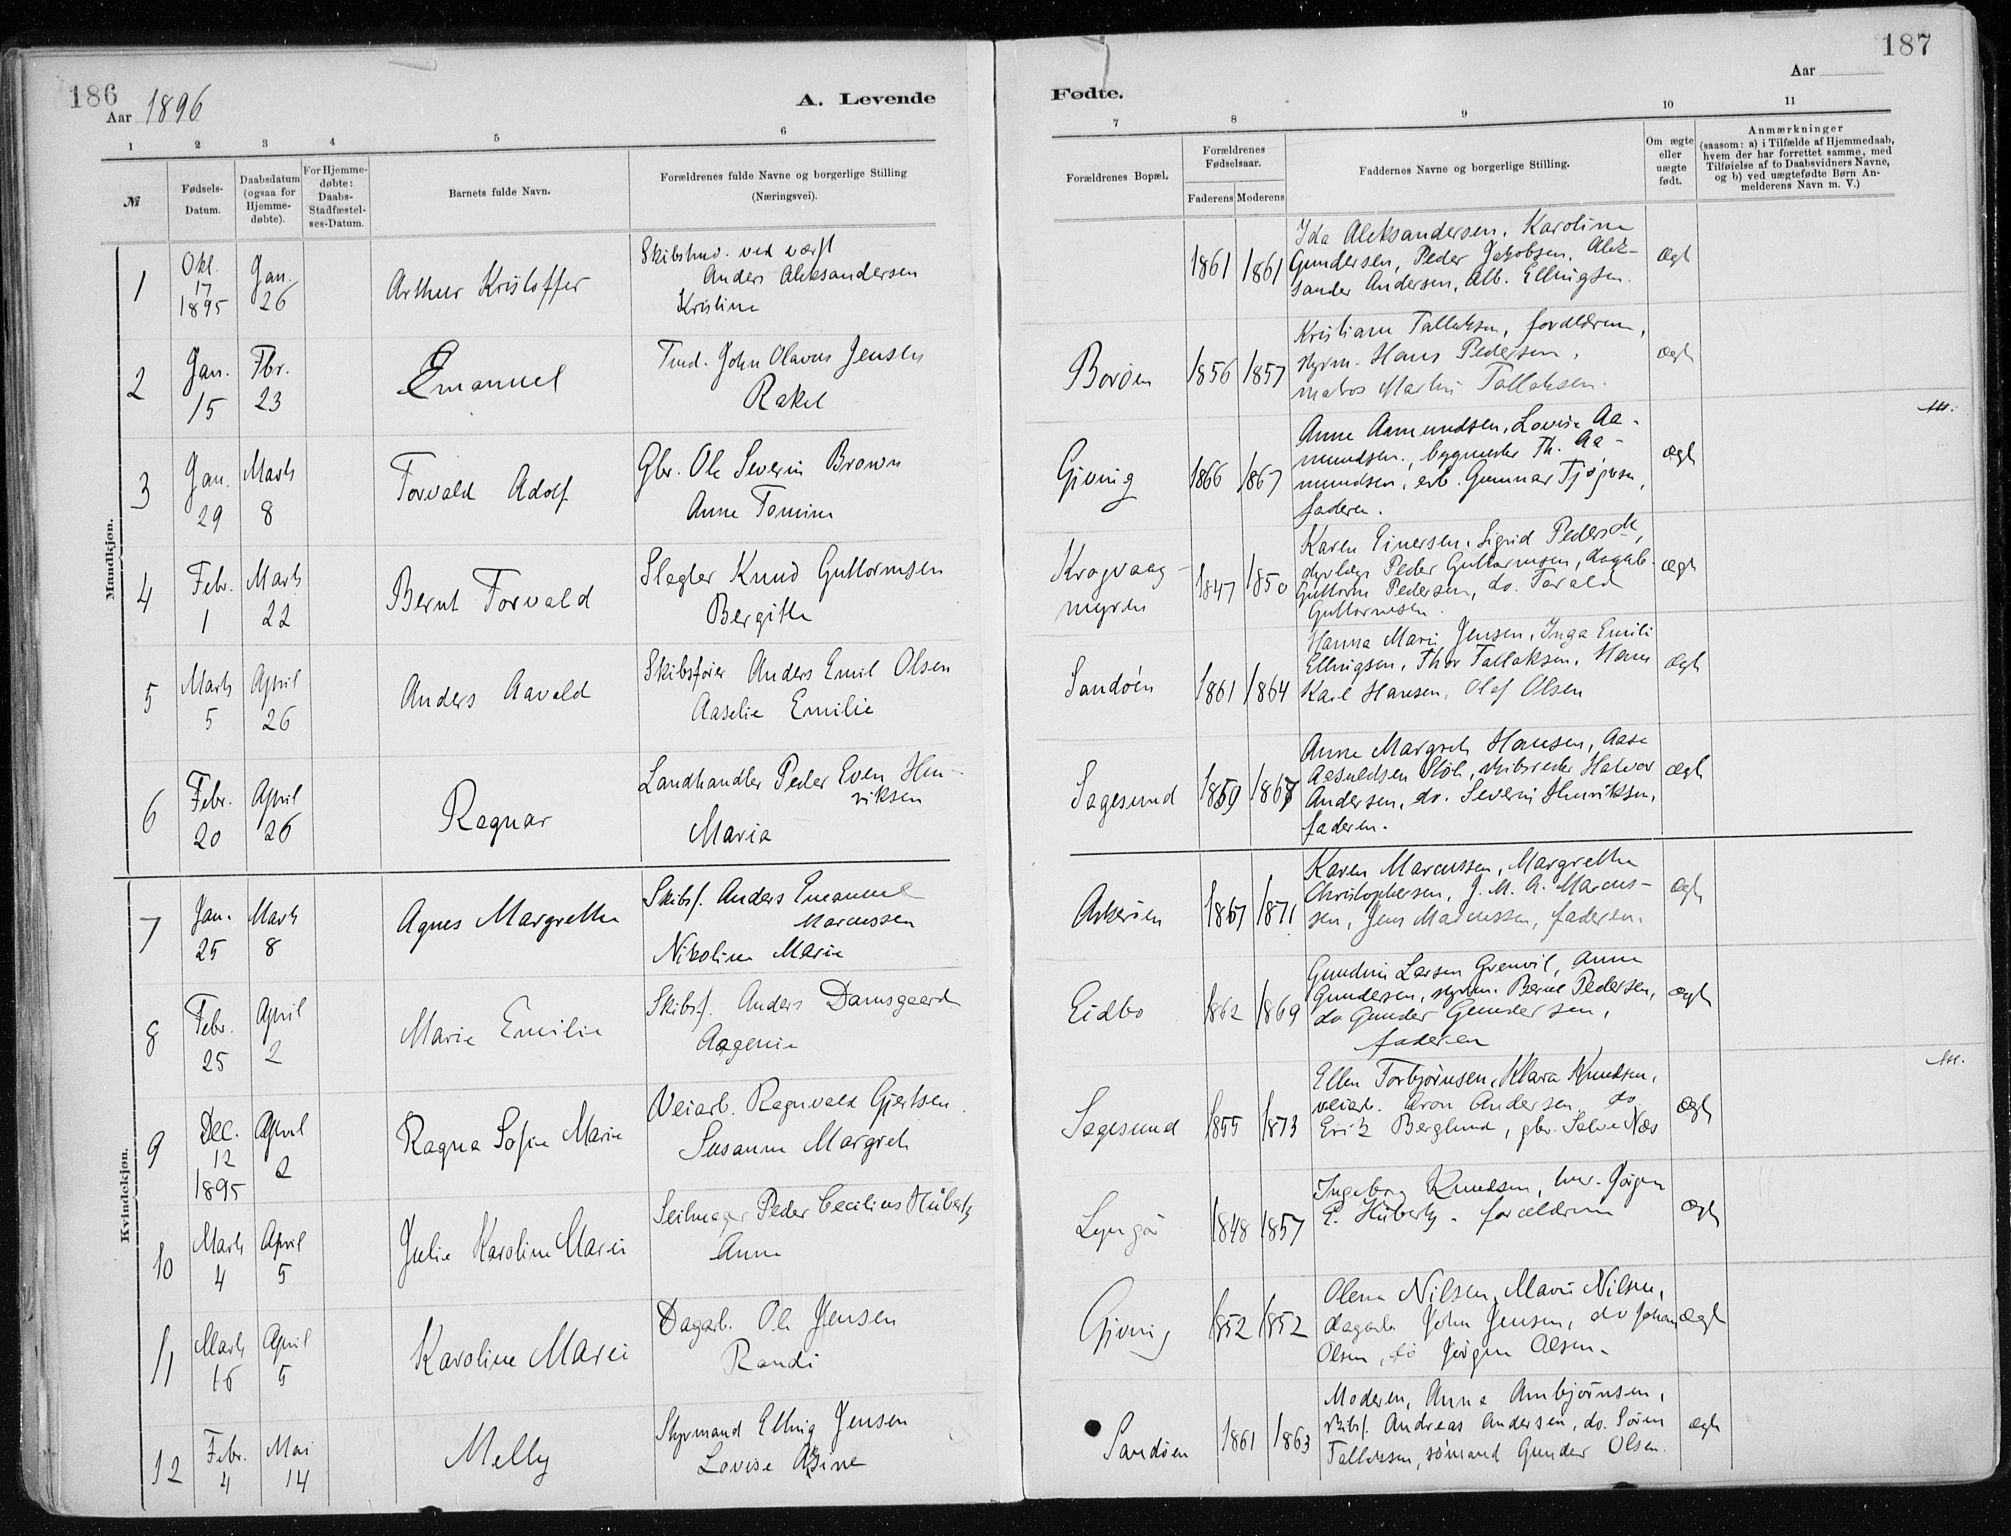 186
Aar 1896
A. Levende
1 2 3 4 5 6
№
Fødsels-
Datum.
Daabsdatum
(ogsaa for
Hjemme-
døbte).
For Hjemme-
døbte:
Daabs-
Stadfæstel-
ses-Datum.
Barnets fulde Navn.
Forældrenes fulde Navne og borgerlige Stilling
(Næringsvei).
Mandkjøn.
1
Okt.
17
1895
Jan.
26
Arthur Kristoffer
ved værft
Anders Aleksandersen
Kristine
2
Jan.
15
Fbr.
23
Emanuel
Tmd. John Olavus Jensen
Rakel
3
Jan.
29
Marts
8
Torvald Adolf
Gbr. Ole Severin Brown
Anne Tomine
4
Febr.
1
Marts
22
Bernt Torvald
Slagter Knud Guttormsen
Bergitte
5
Marts
5
April
26
Anders Aavald
Skibsfører Anders Emil Olsen
Aaselie Emilie
6
Febr.
20
April
26
Ragnar
Landhandler Peder Even Hen-
riksen
Maria
Kvindekjøn.
7
Jan.
25
Marts
8
Agnes Margrethe
Skibsf. Anders Emanuel
Marcussen
Nikoline Marie
8
Febr.
25
April
2
Marie Emilie
Skibsf. Anders Damsgaard
Aagenie
9
Dec.
12
1895
April
2
Ragna Sofie Marie
Veiarb. Ragnvald Gjertsen
Susanne Margreth
10
Marts
4
April
5
Julie Karoline Marei
Seilmager Peder Cecilius Hübertz
Anne
11
Marts
16
April
5
Karoline Marei
Dagarb. Ole Jensen
Randi
12
Febr.
4
Mai
14
Melly
Styrmand Elling Jensen
Lovise
187
Aar
Fødte.
7 8 9 10 11
Forældrenes Bopæl.
Forældrenes
Fødselsaar.
Faderens Moderens
Faddernes Navne og borgerlige Stilling.
Om ægte
eller
uægte
født.
Anmærkninger
(saasom: a) i Tilfælde af Hjemmedaab,
hvem der har forrettet samme, med
Tilføielse af to Daabsvidners Navne,
og b) ved uægtefødte Børn An-
melderens Navn m. V.)
1861 1861
Ida Aleksandersen, Karoline
Gundersen, Peder Jakobsen, Alek-
sander Andersen, Alb. Ellingsen.
ægt
Borøen
1856 1857
Kristiane Tallaksen, forældrene,
styrm. Hans Pedersen,
matros Martin Tallaksen.
ægt
Gjeving
1866 1867
Anne Aamundsen, Lovise Aa-
mundsen, bygmester Th. Aa-
mundsen, arb. Gunnar
faderen.
ægt
Krogvaag-
myren
1847 1850
Karen Einersen, Sigrid
Peder Guttormsen, dagarb.
Guttorm Pedersen, do. Tarald
Guttormsen.
ægt
Sandøen
1861 1864
Hanna Marie Jensen, Inga Emilie
Ellingsen, Thor Tallaksen, Hans
Karl Hansen, Olaf Olsen
ægt
Sagesund
1859 1867
Anne Margreth Hansen, Aase
skibsreder Halvor
Andersen, do. Severin Henriksen,
faderen.
ægt
Askerøen
1867 1871
Karen Marcussen, Margrethe
Christophersen, J. M. A. Marcus-
sen, Jens Marcussen, faderen.
ægt
Eidbo
1862 1869
Gundine Larsen Grenvil, Anne
Gundersen, styrm. Bernt Pedersen,
do Gunder Gundersen,
faderen
ægt
Sagesund
1855 1873
Ellen Torbjørnsen, Klara Knudsen,
veiarb. Aron Andersen, do.
Erik Berglund, gbr. Salve Næs
ægt
Lyngør
1848 1857
Ingeborg Knudsen, Jørgen
E. Hübertz, forældrene
ægt
Gjeving
1852 1852
Olene Nilsen, Marie Nilsen,
dagarb. John Jensen, do Johan
Olsen, do Jørgen Olsen.
ægt
Sandøen
1861 1863
Moderen, Anne Annbjørnsen,
skibsf. Andreas Andersen, do. Søren
Tallaksen, sømand Gunder Olsen.
ægt